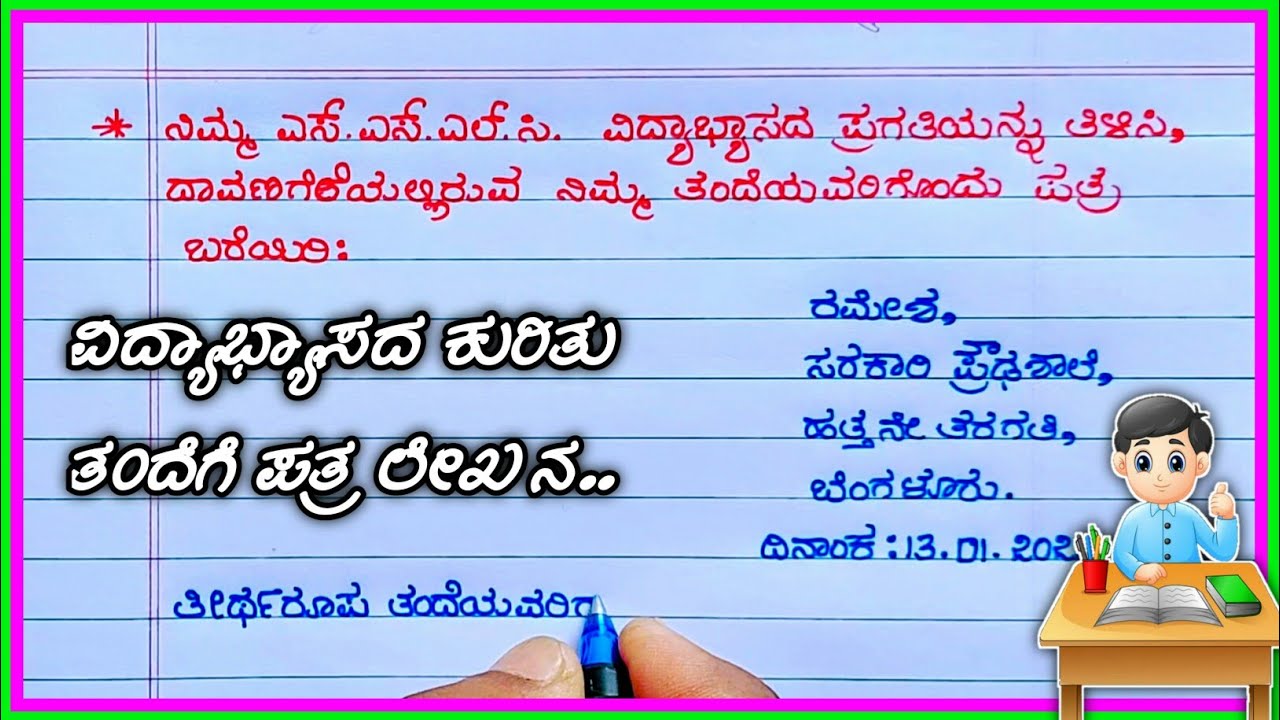 * ನಿಮ್ಮ ಎಸೆ.ಎಸೆ.ಎಲೆ.ಸಿ. ವಿದ್ಯಾಭ್ಯಾಸದ ಪ್ರಗತಿಯನ್ನು ತಿಳಿಸಿ,
ದಾವಣಗೆರೆಯಲ್ಲಿರುವ ನಿಮ್ಮ ತಂದೆಯವರಿಗೊಂದು ಪತ್ರ
ಬರೆಯಿರಿ:
ವಿದ್ಯಾಭ್ಯಾಸದ ಕುರಿತು
ತಂದೆಗೆ ಪತ್ರ ಲೇಖನ..
ರಮೇಶ,
ಸರಕಾರಿ ಪ್ರೌಢಶಾಲೆ,
ಹತ್ತನೇ ತರಗತಿ,
ಬೆಂಗಳೂರು.
ದಿನಾಂಕ :13.01.
ತೀರ್ಥರೂಪ ತಂದೆಯವರಿಗ